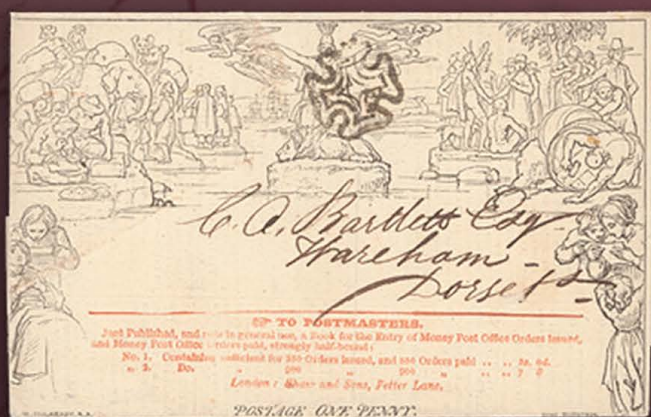 C. A. Bartlett Esq
Wareham
Dorset
TO POSTMASTERS.
Just Published, and now in general use, a Book for the Entry of Money Post Office Orders issued,
and Money Post Office Orders paid, strongly half-bound:
No. 1. Containing sufficient for 350 Orders issued, and 350 Orders paid
„ 2. Do. „ „ „
London: Shaw and Sons, Fetter Lane.
POSTAGE ONE PENNY.